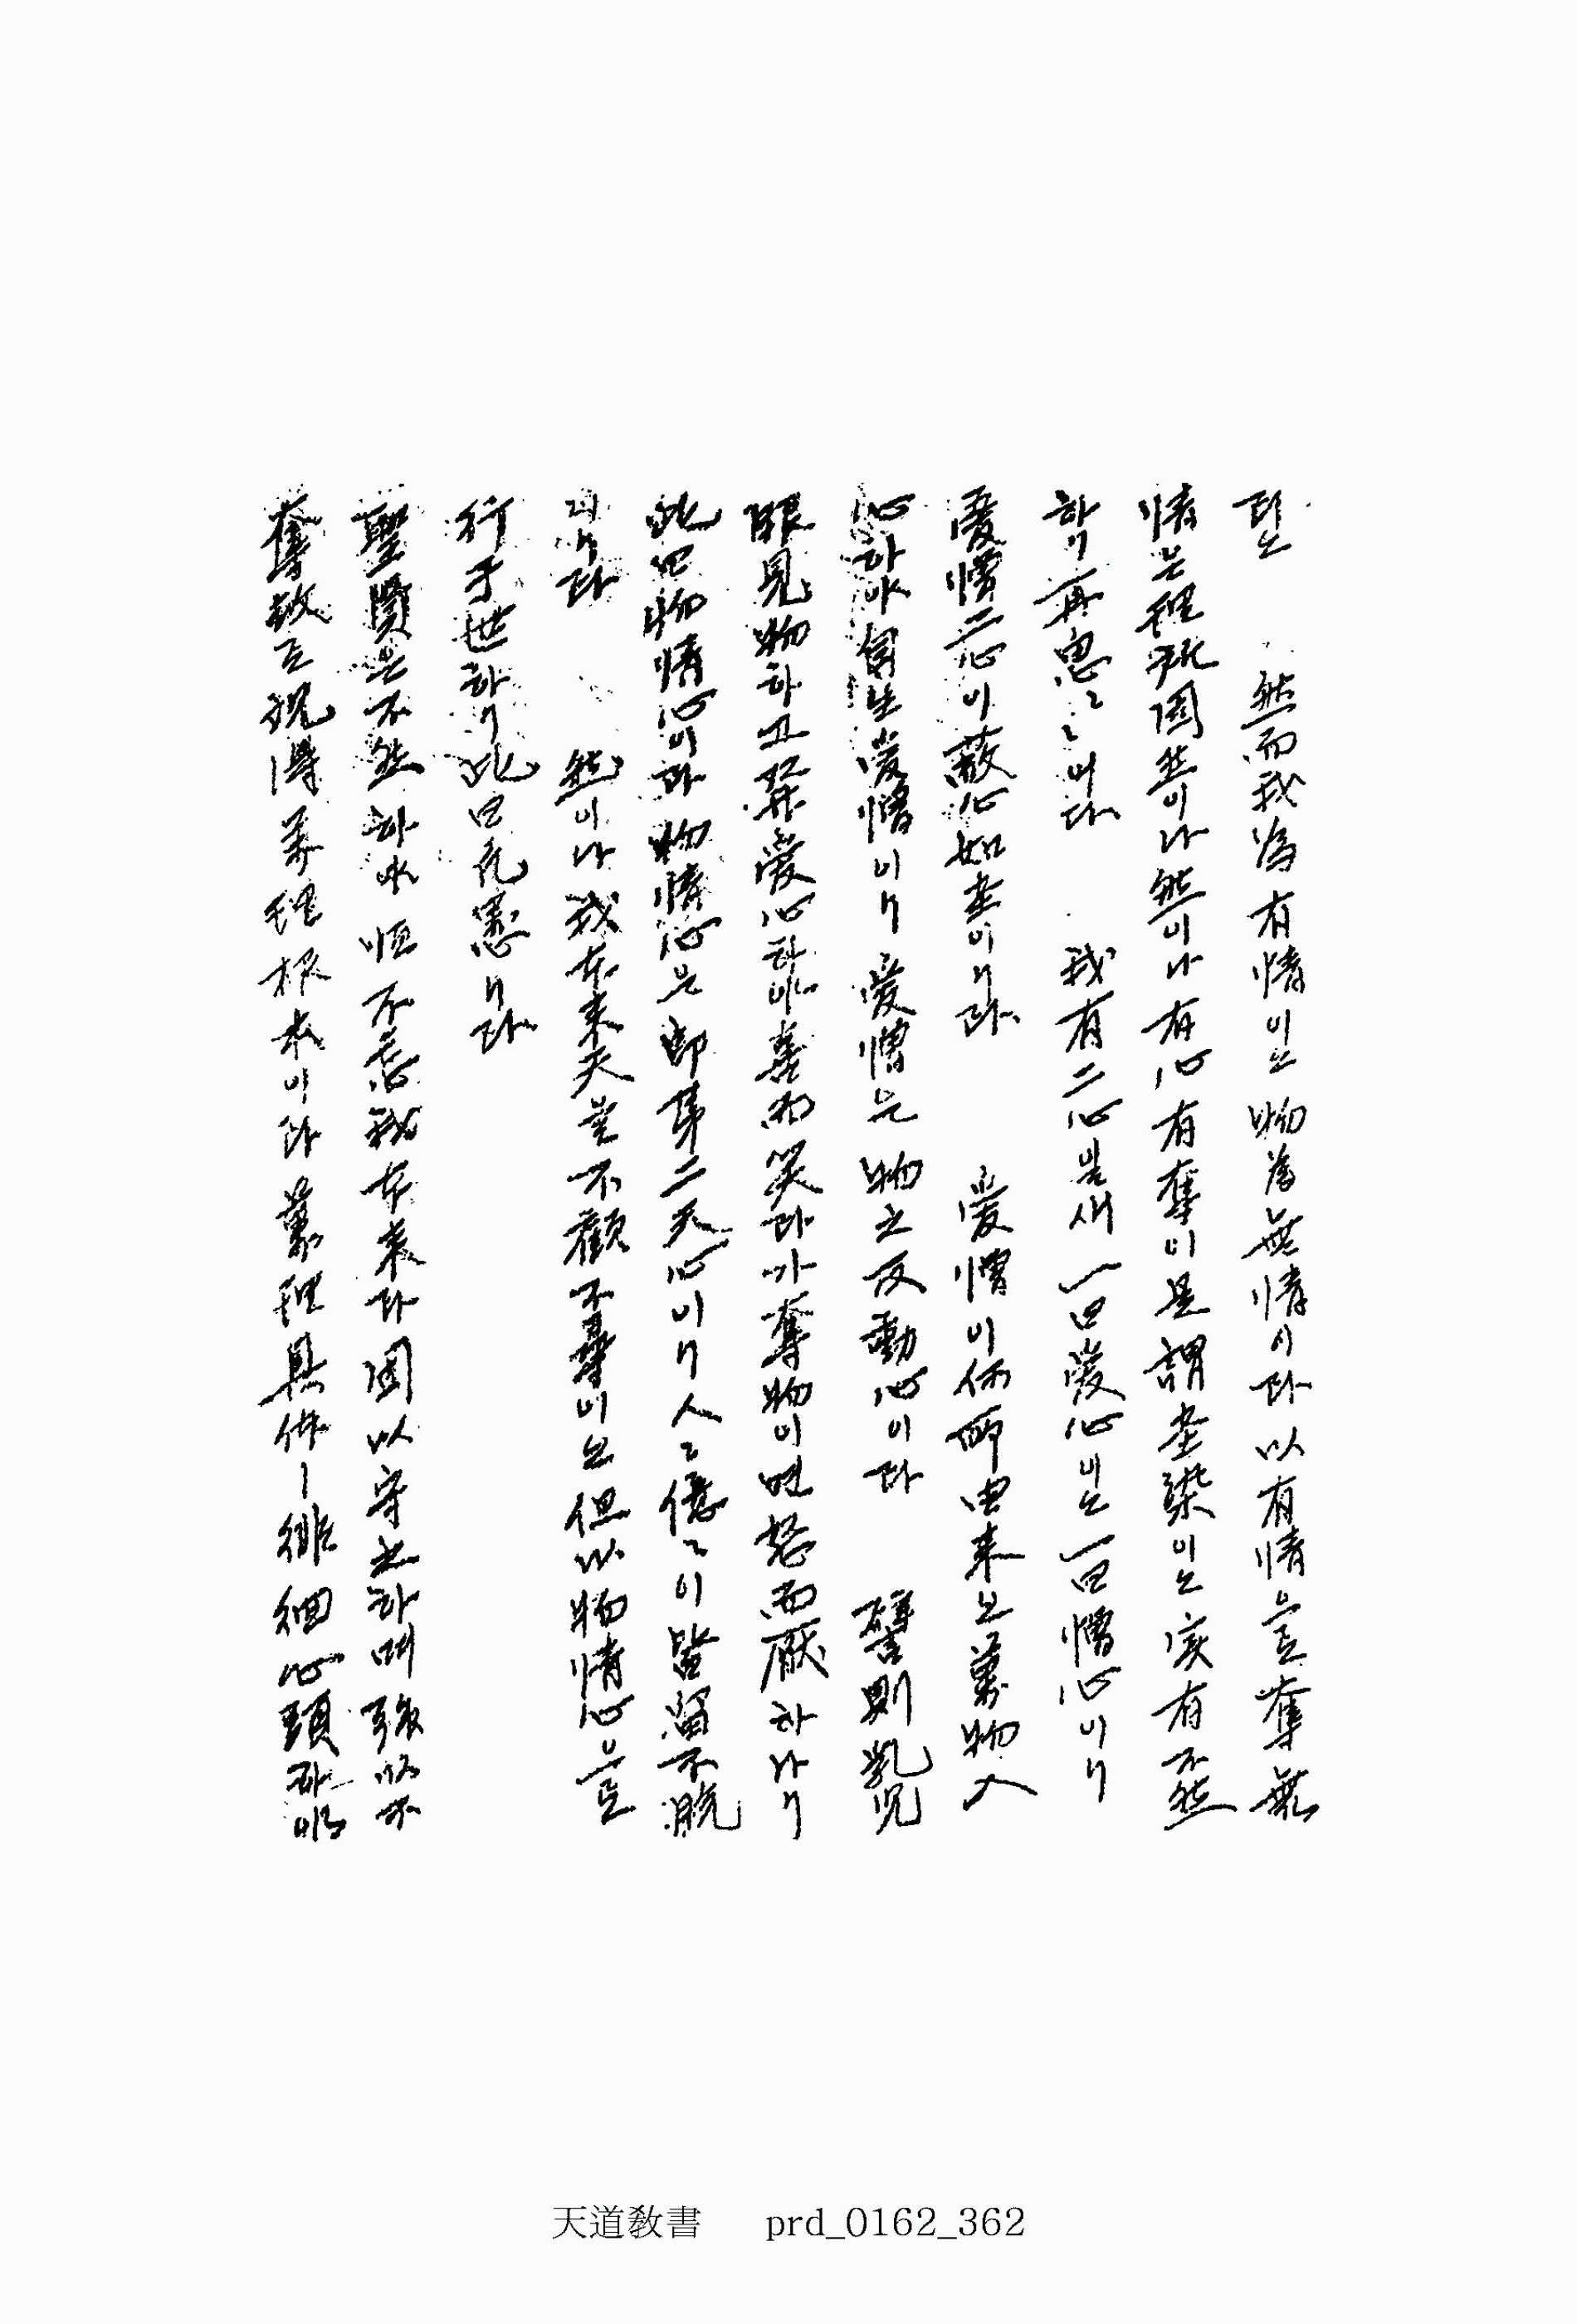 然而我爲有情이오 物爲無情이라 以有情으로 奪無
情은 理所固然이나 然이나 有心有奪이 是謂塵染이오 寂有不然
하니 再思〻〻이다 我有二心일새 一曰愛心이오 一曰憎心이니
愛憎二心이 蔽心如塵이니라 愛憎이 何所由來오 萬物入
心하야 自生愛憎이니 愛憎은 物之反動心이라 譬則乳兒
眼見物하고 發愛心하야 喜而笑라가 奪物이면 怒而厭하나니
此曰物情心이라 物情心은 卽第二天心이니 人〻億〻이 皆留不脫
니라 然이나 我本來天을 不顧不尋이오 但以物情心으로
行于世하니 此曰凡愚니라
聖賢은 不然하야 恒不忘我本來라 固以守之하며 强以不
奪故로 觀得萬理根本이라 萬理具体ㅣ 徘徊心頭하야